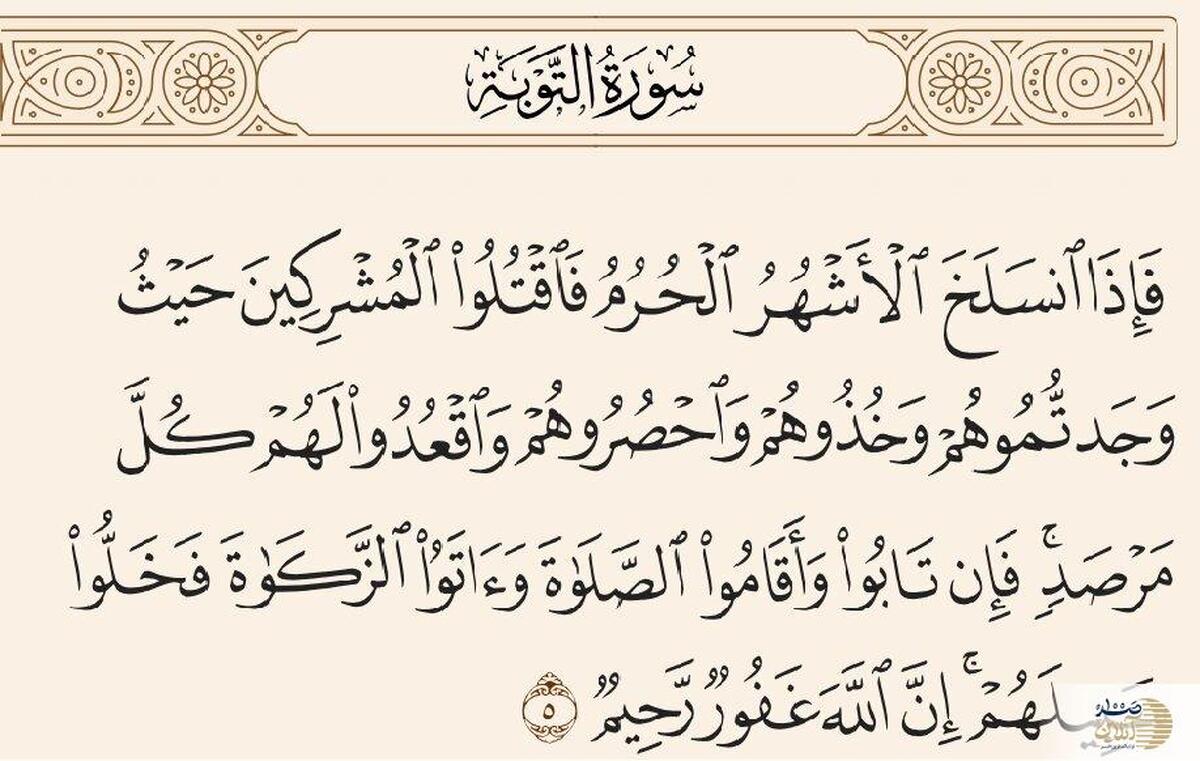 سُورَةُ التَّوۡبَةِ
فَإِذَا ٱنسَلَخَ ٱلۡأَشۡهُرُ ٱلۡحُرُمُ فَٱقۡتُلُواْ ٱلۡمُشۡرِكِينَ حَيۡثُ
وَجَدتُّمُوهُمۡ وَخُذُوهُمۡ وَٱحۡصُرُوهُمۡ وَٱقۡعُدُواْ لَهُمۡ كُلَّ
مَرۡصَدٖۚ فَإِن تَابُواْ وَأَقَامُواْ ٱلصَّلَوٰةَ وَءَاتَوُاْ ٱلزَّكَوٰةَ فَخَلُّواْ
سَبِيلَهُمۡۚ إِنَّ ٱللَّهَ غَفُورٞ رَّحِيمٞ ٥
صدر
آنلاین